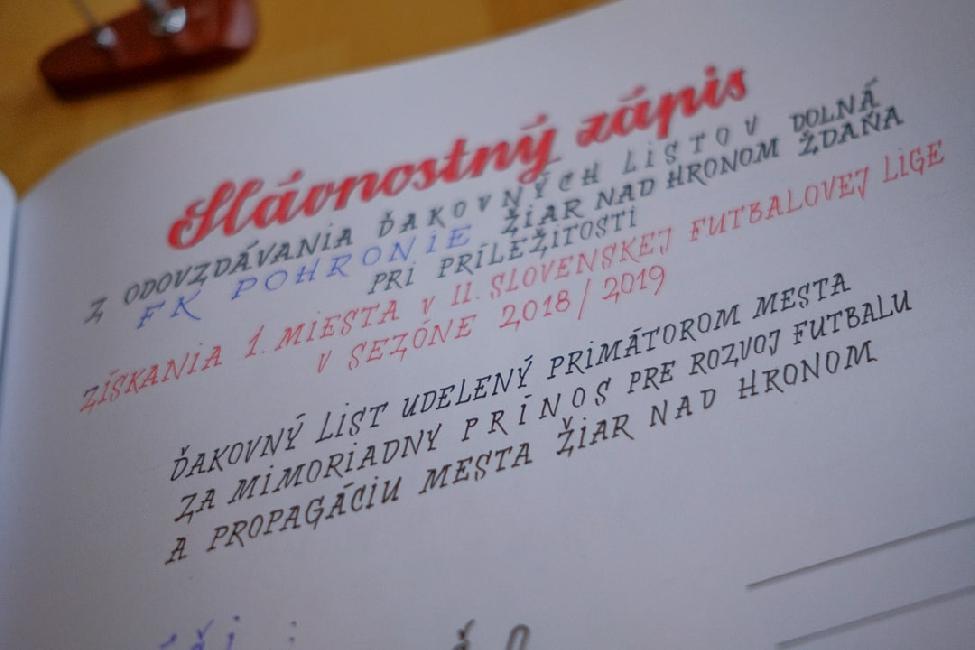 Slávnostný zápis
Z ODOVZDÁVANIA ĎAKOVNÝCH LISTOV
FK POHRONIE ŽIAR NAD HRONOM DOLNÁ ŽDAŇA
PRI PRÍLEŽITOSTI
ZÍSKANIA 1. MIESTA V II. SLOVENSKEJ FUTBALOVEJ LIGE
V SEZÓNE 2018/2019
ĎAKOVNÝ LIST UDELENÝ PRIMÁTOROM MESTA
ZA MIMORIADNY PRÍNOS PRE ROZVOJ FUTBALU
A PROPAGÁCIU MESTA ŽIAR NAD HRONOM